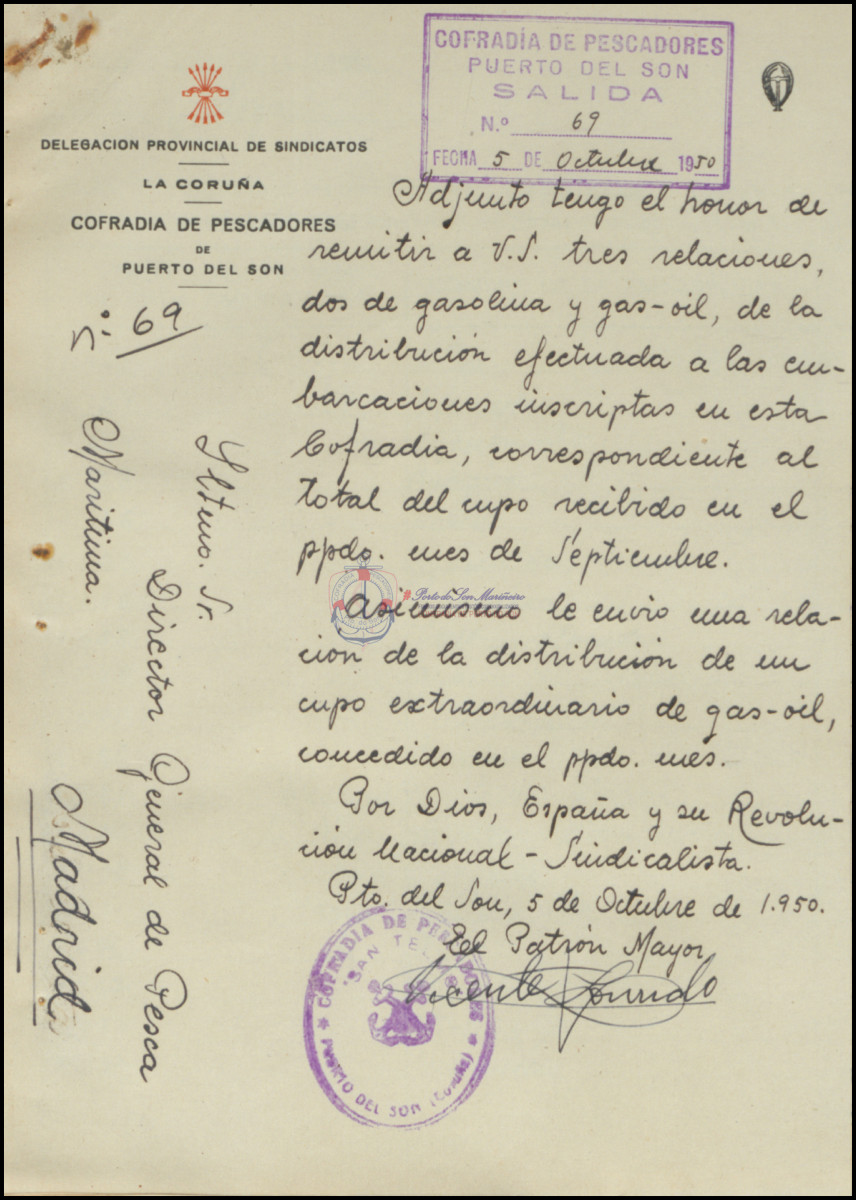 DELEGACION PROVINCIAL DE SINDICATOS
LA CORUÑA
COFRADIA DE PESCADORES
DE
PUERTO DEL SON
COFRADÍA DE PESCADORES
PUERTO DEL SON
SALIDA
N.º 69
FECHA 5 DE Octubre 1950
n.º 69/
Adjunto tengo el honor de
remitir a V.S. tres relaciones,
dos de gasolina y gas-oil, de la
distribución efectuada a las em-
barcaciones inscriptas en esta
Cofradia, correspondiente al
total del cupo recibido en el
ppdo. mes de Septiembre.
Asimismo le envio una rela-
ción de la distribución de un
cupo extraordinario de gas-oil,
concedido en el ppdo. mes.
Por Dios, España y su Revolu-
ción Nacional-Sindicalista.
Pto. del Son, 5 de Octubre de 1.950.
El Patrón Mayor
Vicente
Iltmo. Sr.
Director General de Pesca
Maritima.
Madrid
COFRADIA DE PESCADORES
"SAN TELMO"
PUERTO DEL SON (CORUÑA)
Porto do Son Mariñeiro